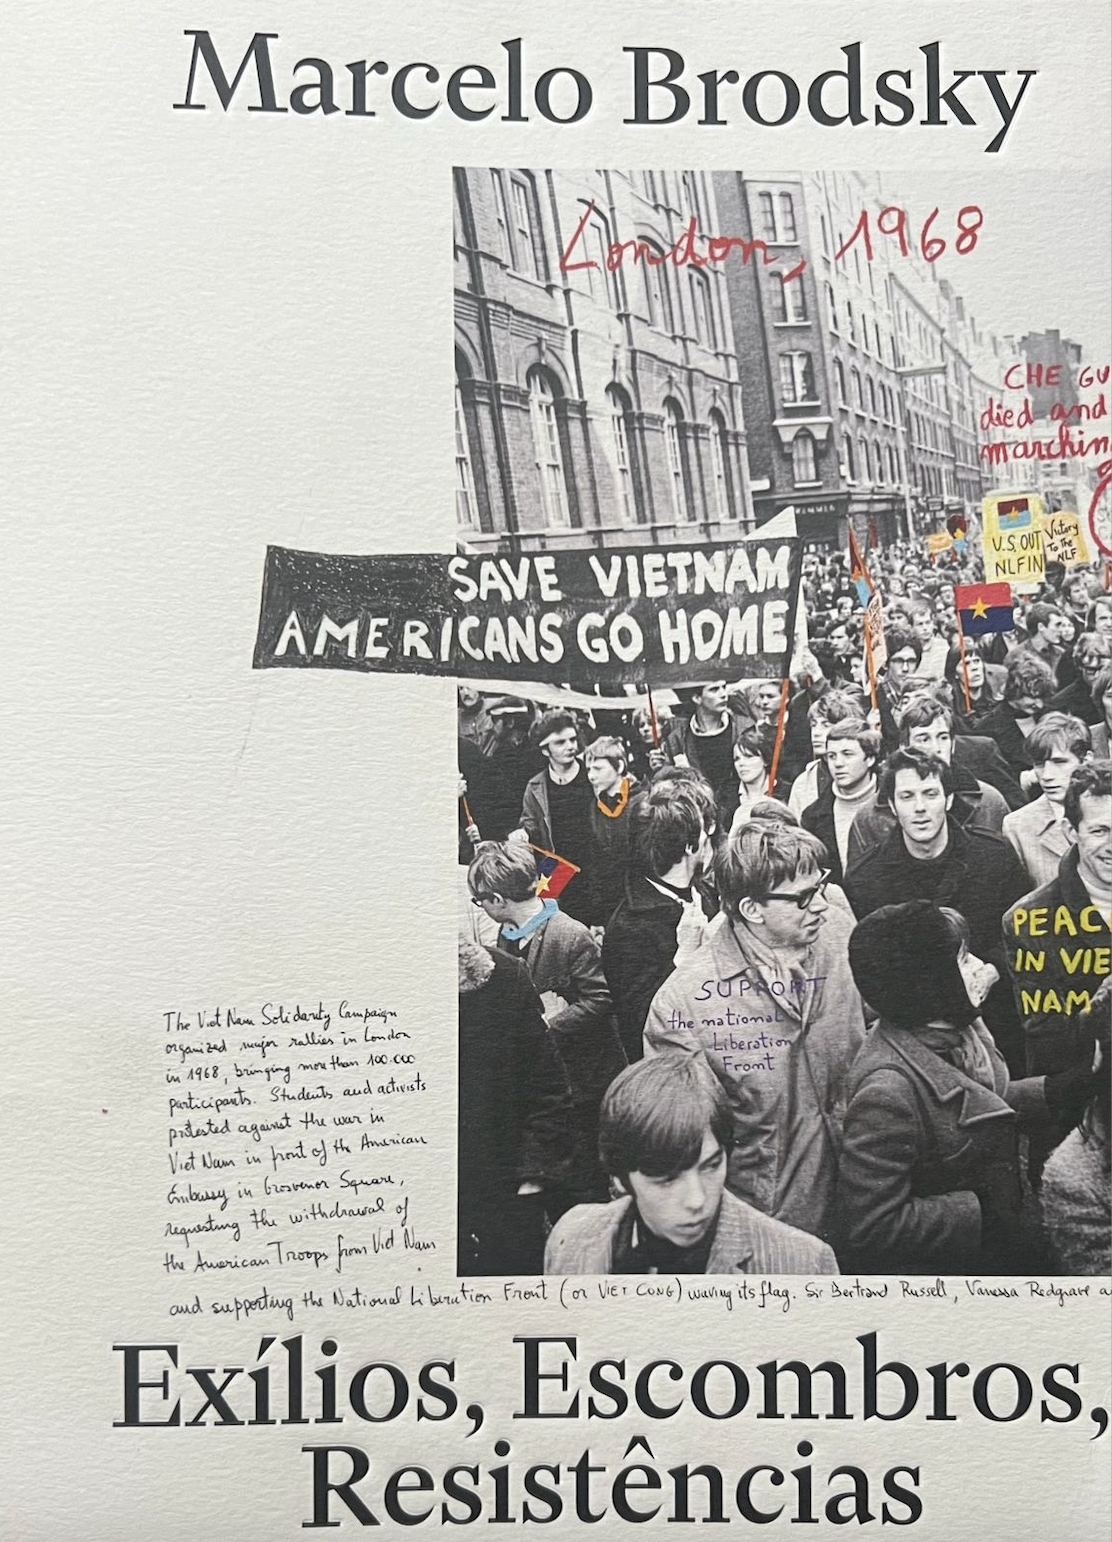 Marcelo Brodsky
London, 1968
CHE GU
died and
marchin
U.S. OUT
NLF IN
Victory
To the
NLF
SAVE VIETNAM
AMERICANS GO HOME
PEAC
IN VIE
NAM
SUPPORT
the national
Liberation
Front
The Viet Nam Solidarity Campaign
organized major rallies in London
in 1968, bringing more than 100.000
participants. Students and activists
protested against the war in
Viet Nam in front of the American
Embassy in Grosvenor Square,
requesting the withdrawal of
the American Troops from Viet Nam
and supporting the National Liberation Front (or VIET CONG) waving its flag. Sir Bertrand Russell, Vanessa Redgrave a
Exílios, Escombros,
Resistências